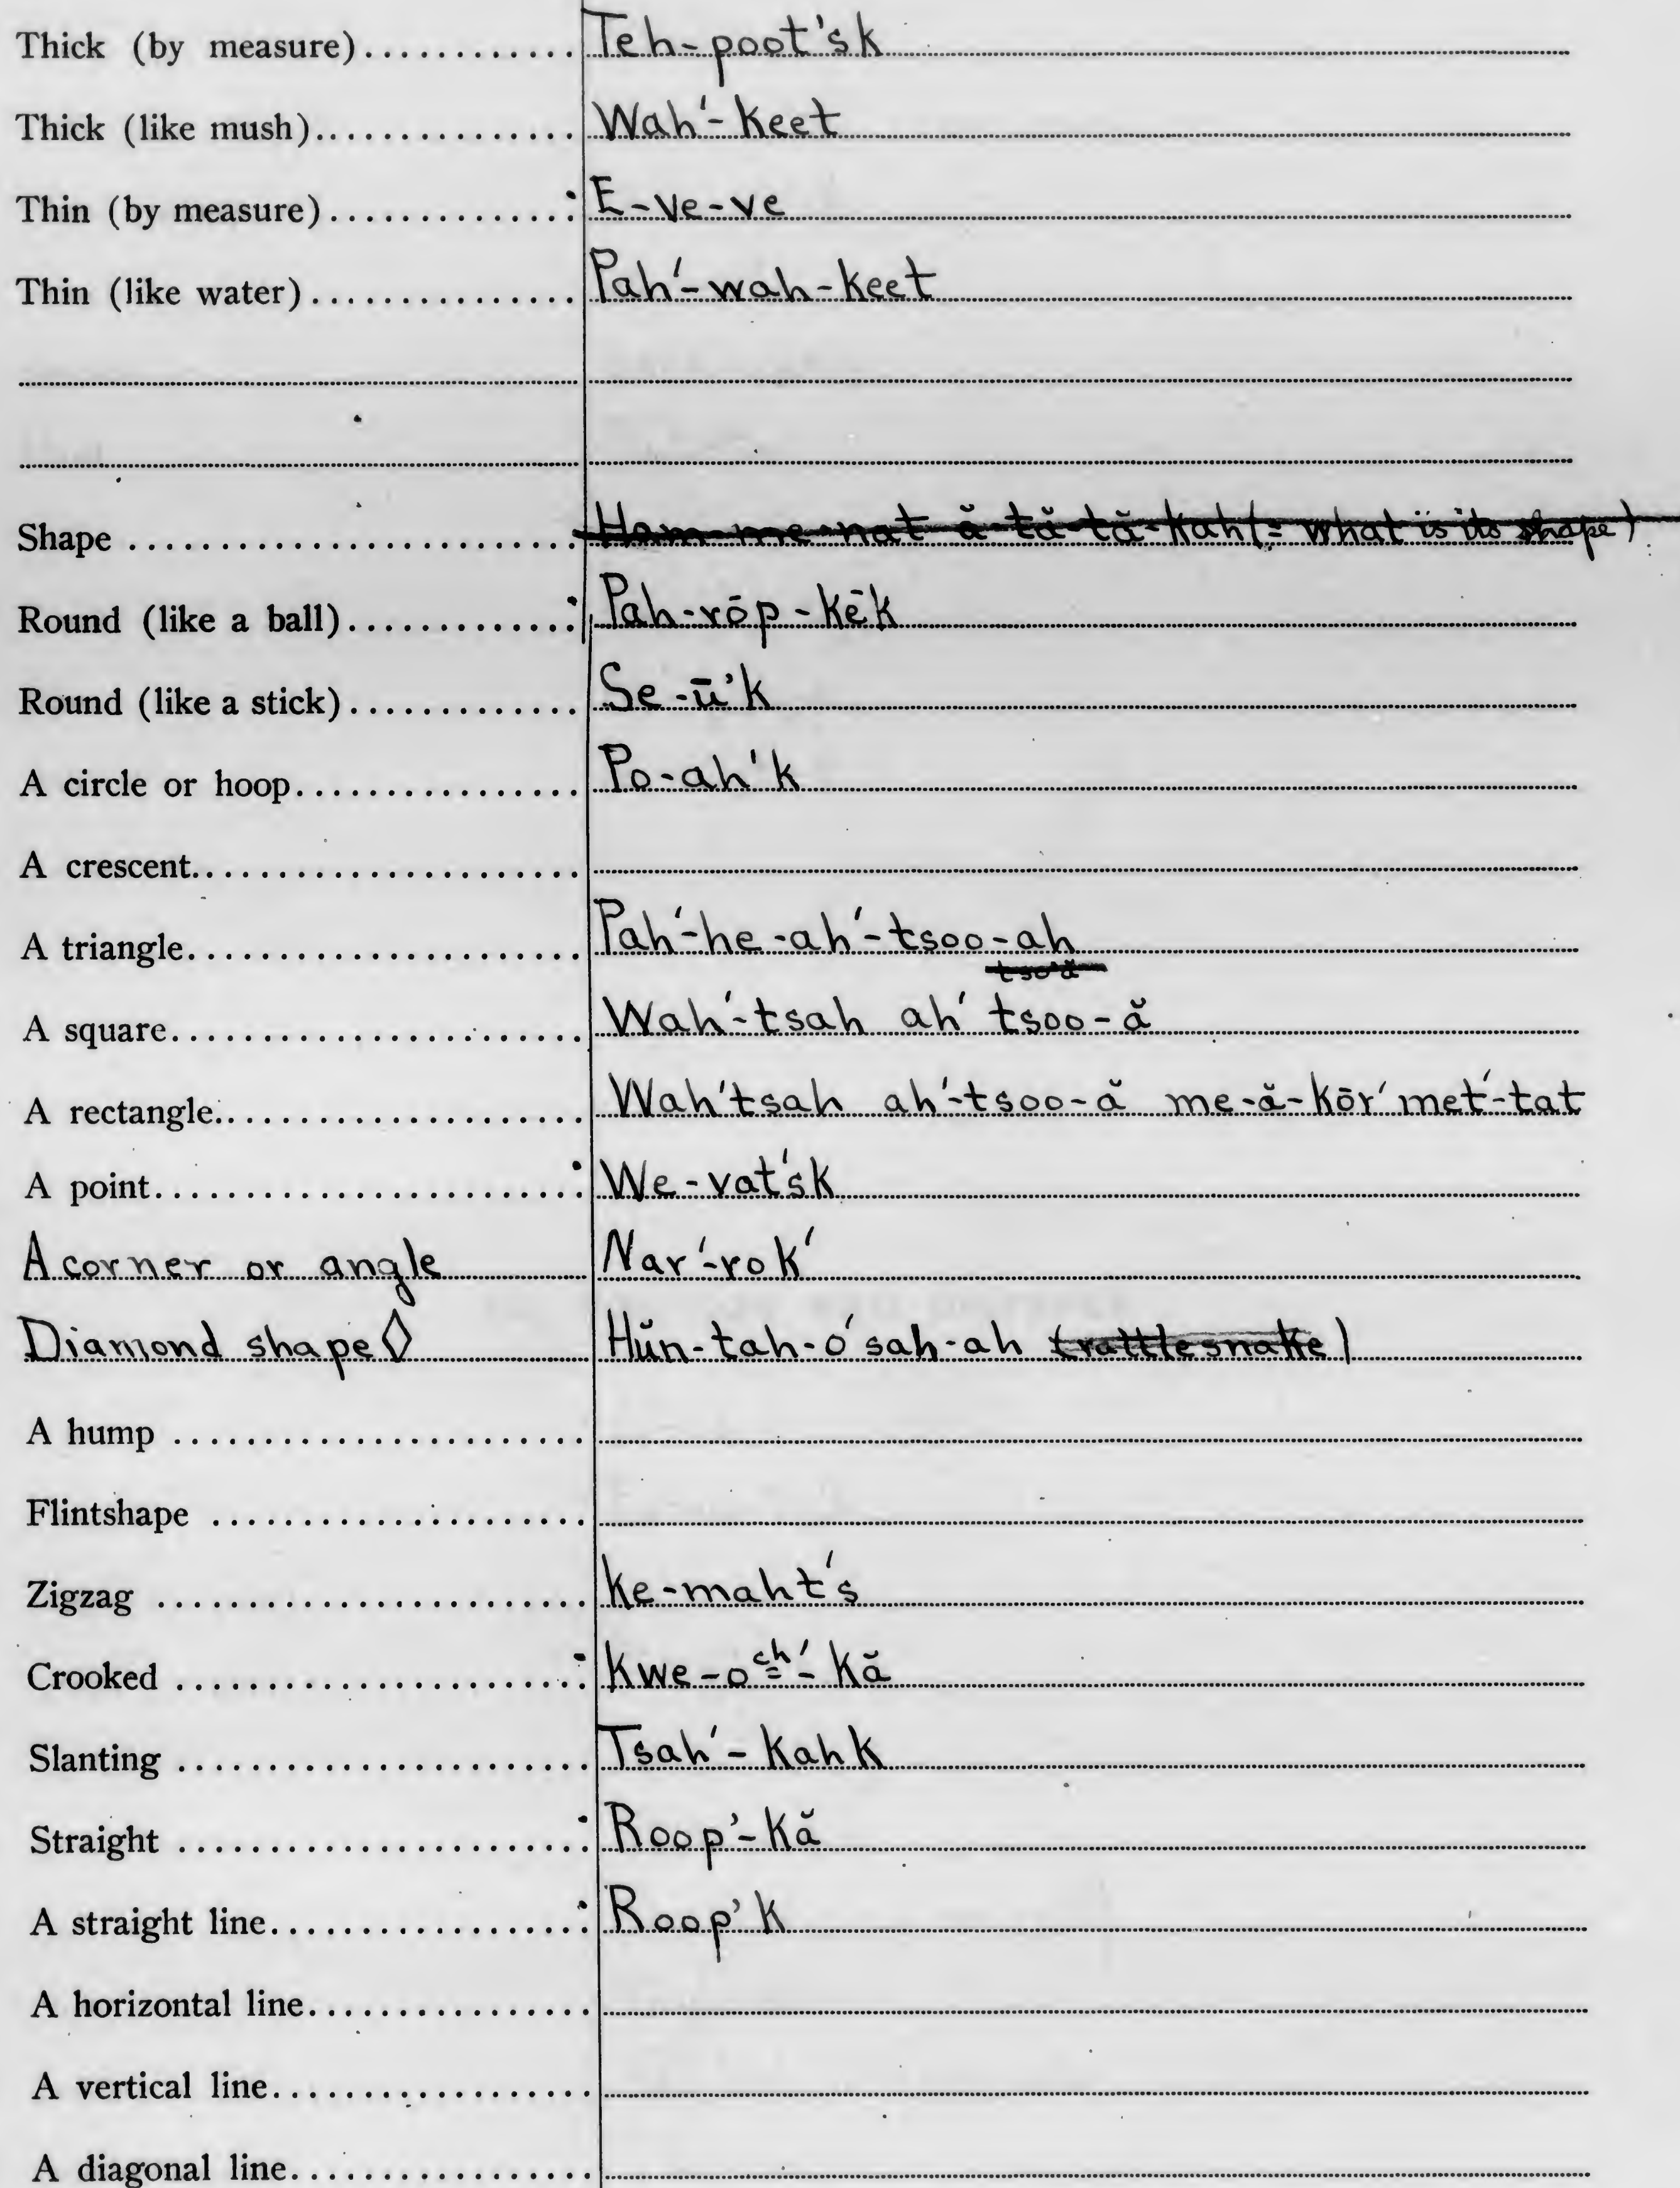 Thick (by measure)............ Teh-poot'sk
Thick (like mush)............... Wah'-keet
Thin (by measure)..............: E-ve-ve
Thin (like water)............... Pah'-wah-keet
Shape ......................... Ham-me-nat ă-tă-tă-kah (= what is its shape)
Round (like a ball).............: Pah-rōp-kēk
Round (like a stick)............. Se-ū'k
A circle or hoop................ Po-ah'k
A crescent......................
A triangle...................... Pah'-he-ah'-tsoo-ah
tso'ă
A square....................... Wah'-tsah ah' tsoo-ă
A rectangle..................... Wah'tsah ah'-tsoo-ă me-ă-kōr' met'-tat
A point........................: We-vat'sk
A corner or angle Nar'-rok'
Diamond shape ◊ Hŭn-tah-o'sah-ah (rattlesnake)
A hump .......................
Flintshape .....................
Zigzag ........................ Ke-maht's
Crooked .......................: Kwe-o͟ch'-kă
Slanting ....................... Tsah'-kahk
Straight .......................: Roop'-kă
A straight line.................: Roop'k
A horizontal line................
A vertical line..................
A diagonal line.................